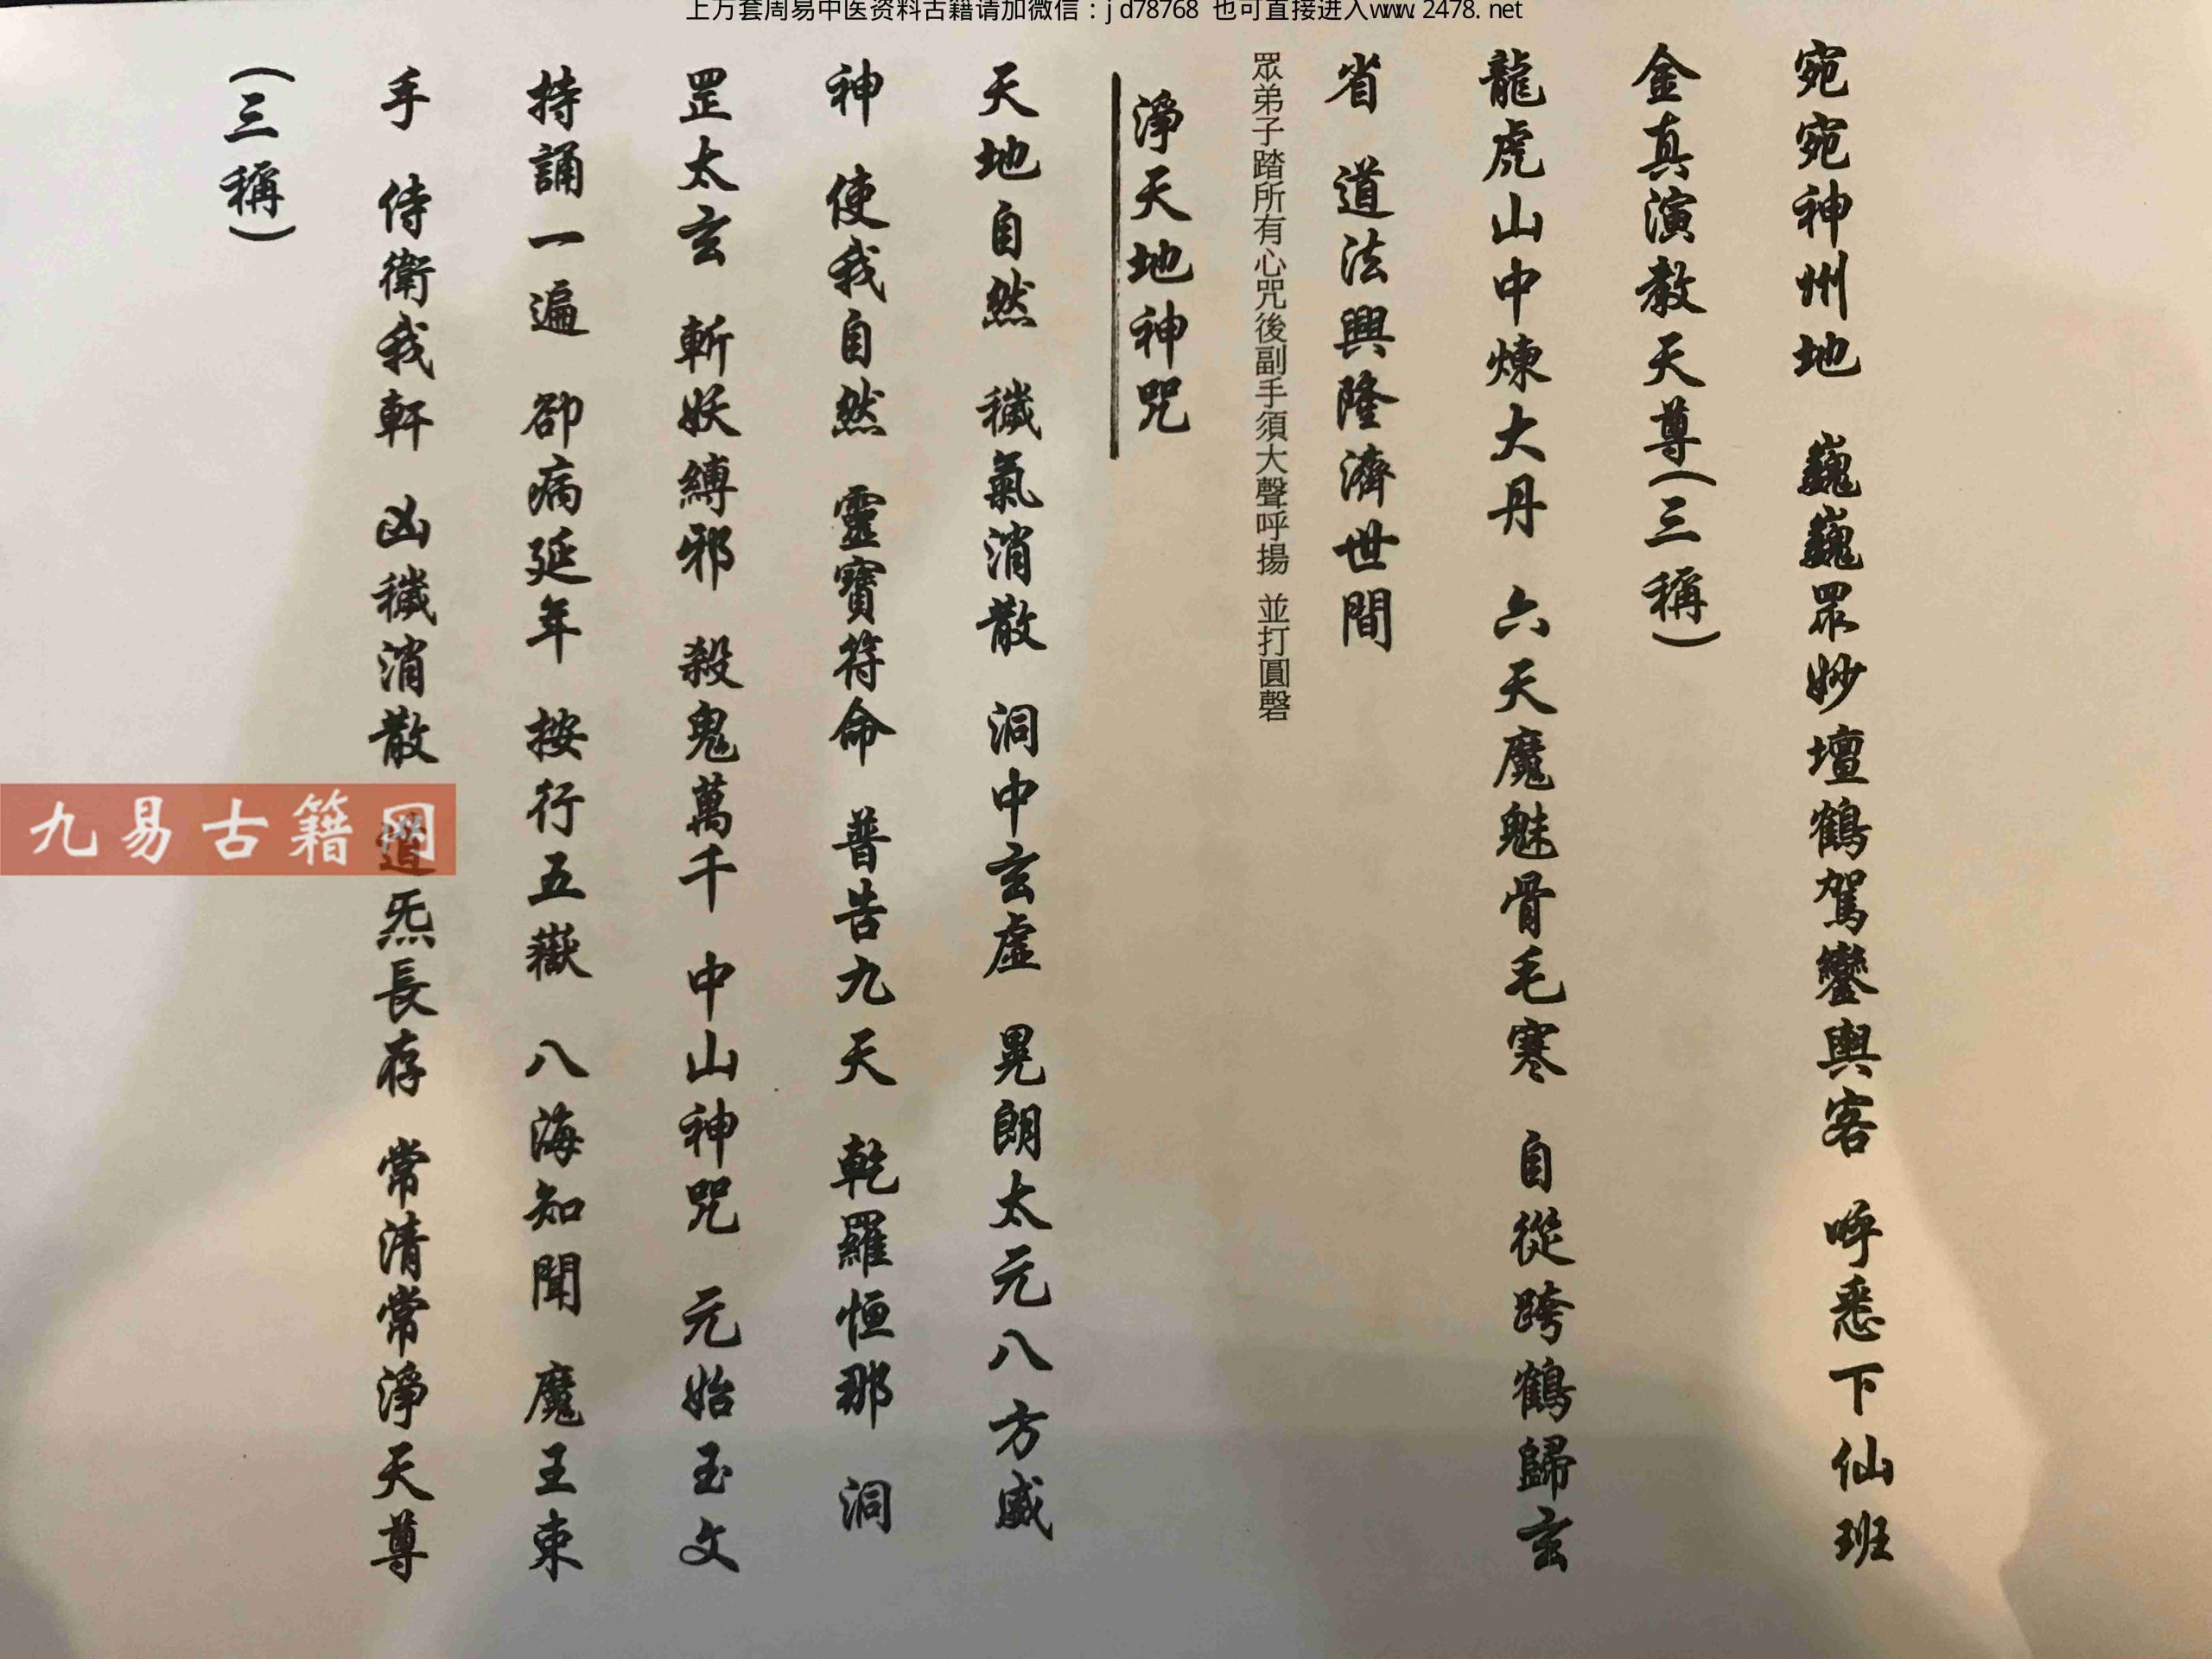 上万套周易中医资料古籍请加微信：jd78768 也可直接进入www.2478.net
宛宛神州地 巍巍眾妙壇鶴駕鑾輿客 呼悉下仙班
金真演教天尊(三稱)
龍虎山中煉大丹 六天魔魅骨毛寒 自從跨鶴歸玄
省 道法興隆濟世間
眾弟子踏所有心咒後副手須大聲呼揚 並打圓磬
淨天地神咒
天地自然 穢氣消散 洞中玄虛 晃朗太元八方威
神 使我自然 靈寶符命 普告九天 乾羅恒那 洞
罡太玄 斬妖縛邪 殺鬼萬千 中山神咒 元始玉文
持誦一遍 卻病延年 按行五嶽 八海知聞 魔王束
手 侍衛我軒 凶穢消散 道炁長存 常清常淨天尊
(三稱)
九易古籍网